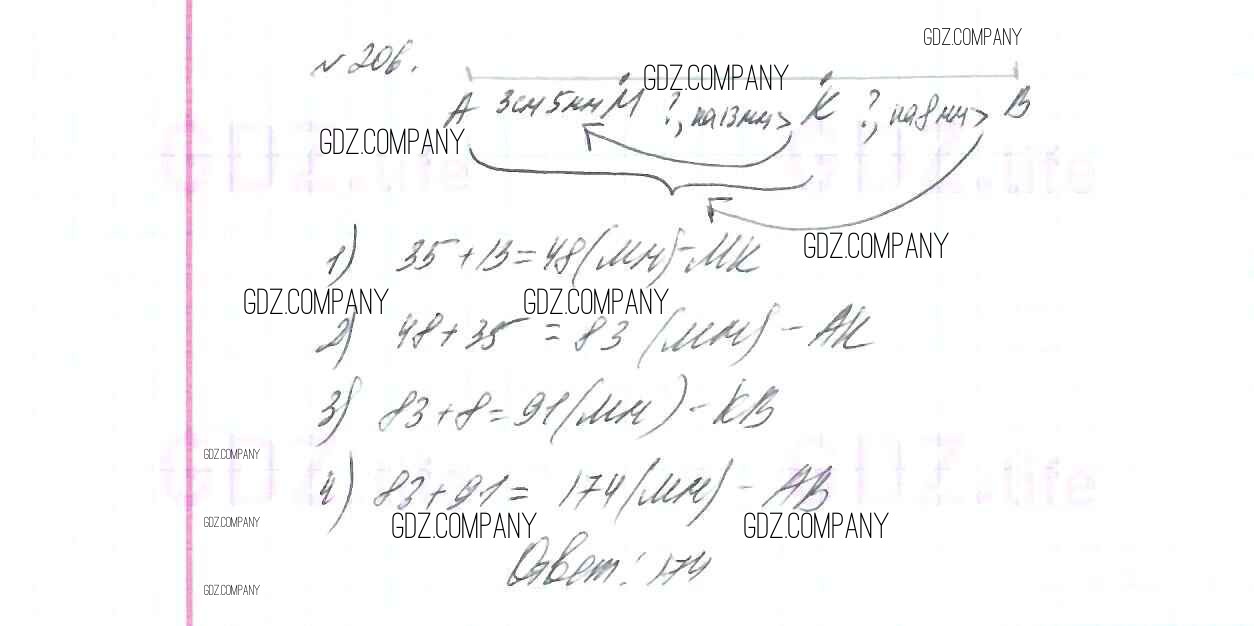 GDZ.COMPANY
№ 206.
GDZ.COMPANY
A 3см 5мм M ?, на 13мм > K ?, на 8мм > B
GDZ.COMPANY
GDZ.life GDZ.life
1) 35 + 13 = 48 (мм) - МК
GDZ.COMPANY
GDZ.COMPANY GDZ.COMPANY
2) 48 + 35 = 83 (мм) - АК
3) 83 + 8 = 91 (мм) - КВ
GDZ.COMPANY
GDZ.life GDZ.life
4) 83 + 91 = 174 (мм) - АВ
GDZ.COMPANY GDZ.COMPANY GDZ.COMPANY
Ответ: 174
GDZ.COMPANY